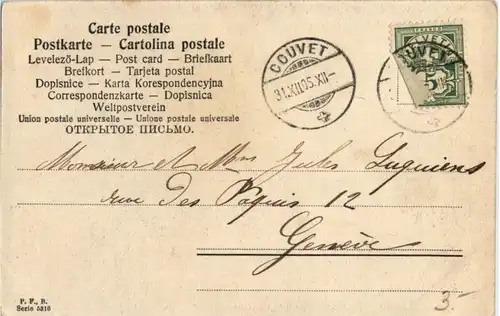 Carte postale
Postkarte — Cartolina postale
Levelező-Lap — Post card — Briefkaart
Brefkort — Tarjeta postal
Dopisnice — Karta Korespondencyjna
Correspondenzkarte — Dopisnica
Weltpostverein
Union postale universelle — Unione postale universale
ОТКРЫТОЕ ПИСЬМО.
COUVET
31.XII.05.XII-
COUVET
5
Monsieur et Mme Jules Juguiens
rue Des Paquis 12
Genève
P. F., B.
Serie 5316
3.-